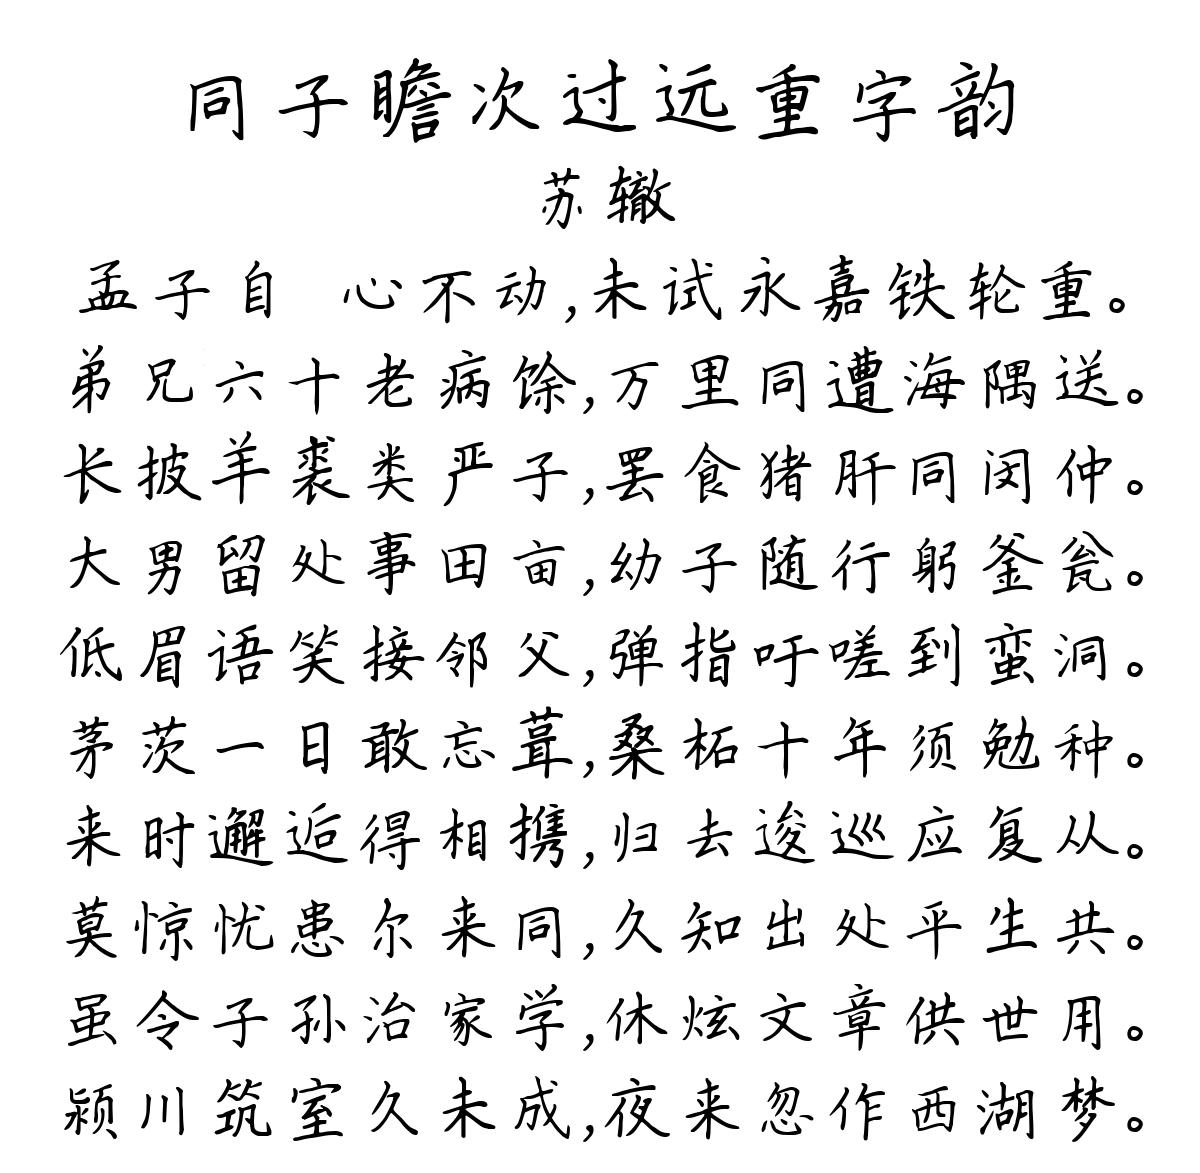 同子瞻次过远重字韵
苏辙
孟子自 心不动,未试永嘉铁轮重。
弟兄六十老病馀,万里同遭海隅送。
长披羊裘类严子,罢食猪肝同闵仲。
大男留处事田亩,幼子随行躬釜瓮。
低眉语笑接邻父,弹指吁嗟到蛮洞。
茅茨一日敢忘葺,桑柘十年须勉种。
来时邂逅得相携,归去逡巡应复从。
莫惊忧患尔来同,久知出处平生共。
虽令子孙治家学,休炫文章供世用。
颍川筑室久未成,夜来忽作西湖梦。